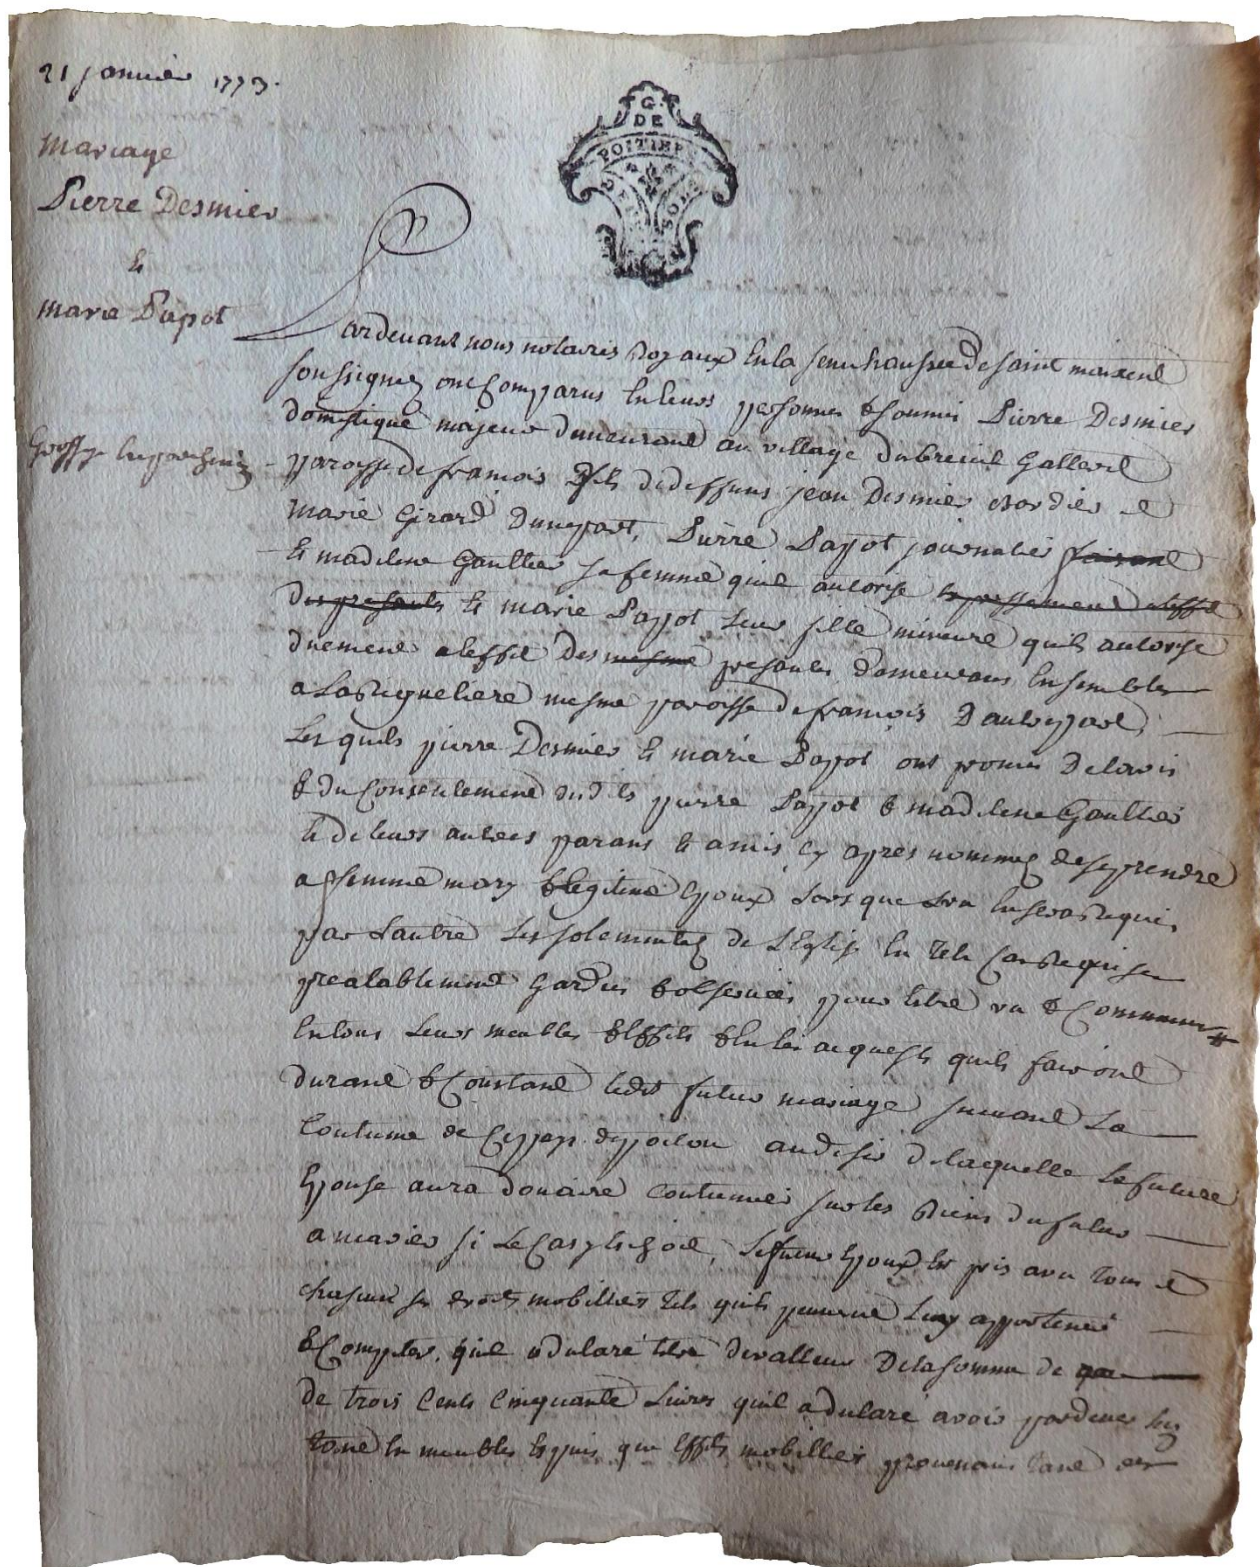 21 janvier 1773.
Mariage
Pierre Desmier
et
marie Papot
Grossye en parchemin
G.
DE
POITIERS
DEUX SOLS
Pardevant nous notaires Royaux en la senechaussee de saint maixent
soussignez ont Comparus en leurs personnes & soumis Pierre Desmier
domestique majeur demeurant au village du breuil Gallerd
paroisse de francois fils de deffuns jean Desmier Bordier et
marie Girard d'une part, Pierre Papot journalier faisant
et madelene Gaultier sa femme qu'il autorise expressement a l'effet
des presentes et marie Papot leur fille mineure qu'ils autorise
duement a leffet des mesme presentes demeurans ensembles
a La Pigueliere mesme paroisse de francois d'autre part,
Lesquels pierre Desmier et marie Papot ont promis de lavis
& du Consentement desdits pierre Papot & madelene Gaultier
et de leurs autres parans et amis cy apres nommez de se prendre
a femme mary & legitime Epoux Lors que Lun en sera Requis
par Lautre Les solemnitez de LEglise en tels Cas Requise
prealablement Gardees & observees pour etre un & Communs
en tous Leurs meubles & Effets & en les acquests quils fairont
durant & Constant ledit futur mariage suivant La
Coutume de Ce pays de poitou au desir de laquelle La future
Epouse aura douaire Coutumier sur les Biens du futur
a marier si Le Cas y Echoit, Le futur Epoux Est pris avec tous et
chascuns ses droits mobilliers tels quils peuvent Luy appartenir
& Compter, quil a declaré etre de valleur De la somme de que
de trois Cents Cinquante Livres quil a declaré avoir par devers luy
tant en meubles Especes que Effets mobilliers provenans tant de